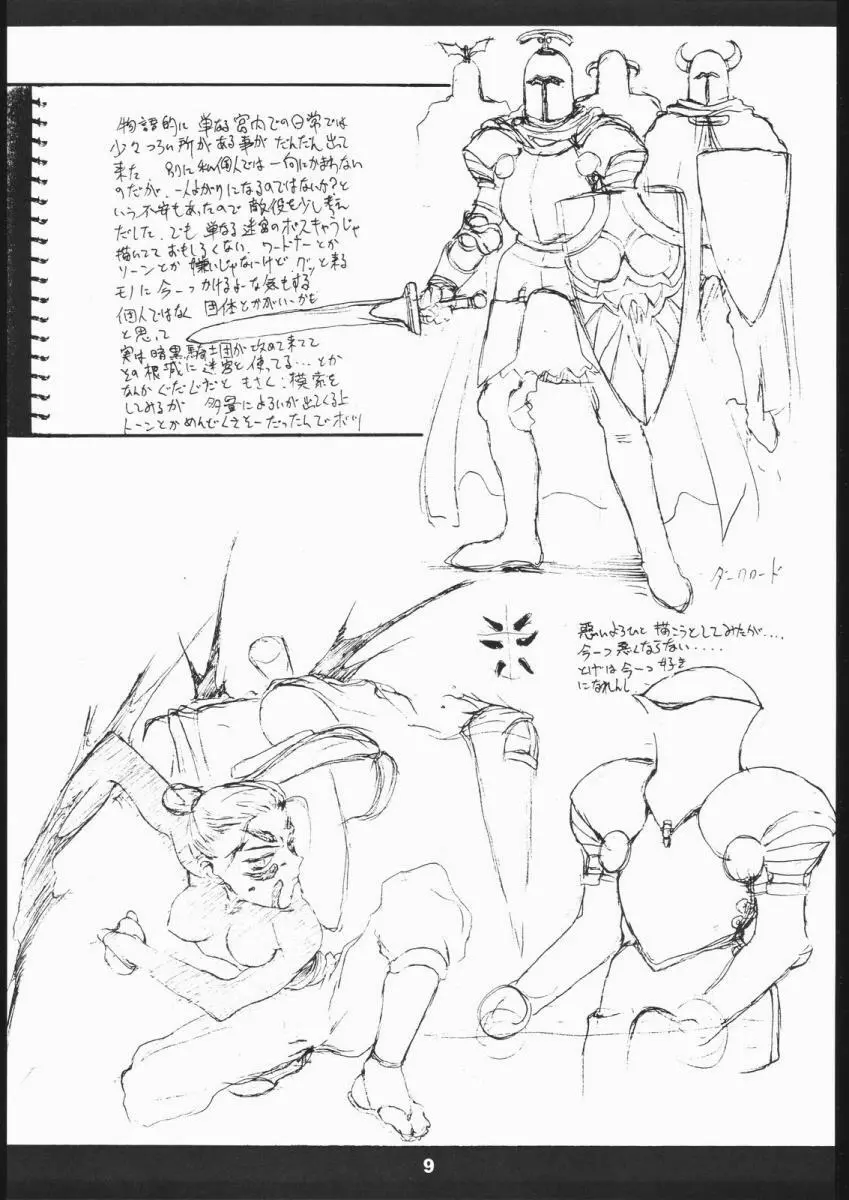 物語的に 単なる宮内での日常では
少々つらい所がある事がだんだん出て
来た 別に私個人では一向にかまわない
のだが、一人よがりになるのではないか?と
いう不安もあったので敵役を少し考え
だした、でも 単なる迷宮のボスキャラじゃ
描いてて おもしろくない、ワードナーとか
ソーンとか 嫌いじゃなーいけど、グッと来る
モノに今一つかけるよーな気もする
個人ではなく 団体とかがいーかも
と思って
実は暗黒騎士団が攻めて来てて
その根城に迷宮を使ってる…とか
なんかぐだぐだと もさくし模索を
してみるが 多量によろいが出てくる上
トーンとかめんどくさそーだったんでボツ
ダークロード
悪いよろひを 描こうとしてみたが....
今一つ悪くならない....
とげは今一つ好き
になれんし
9